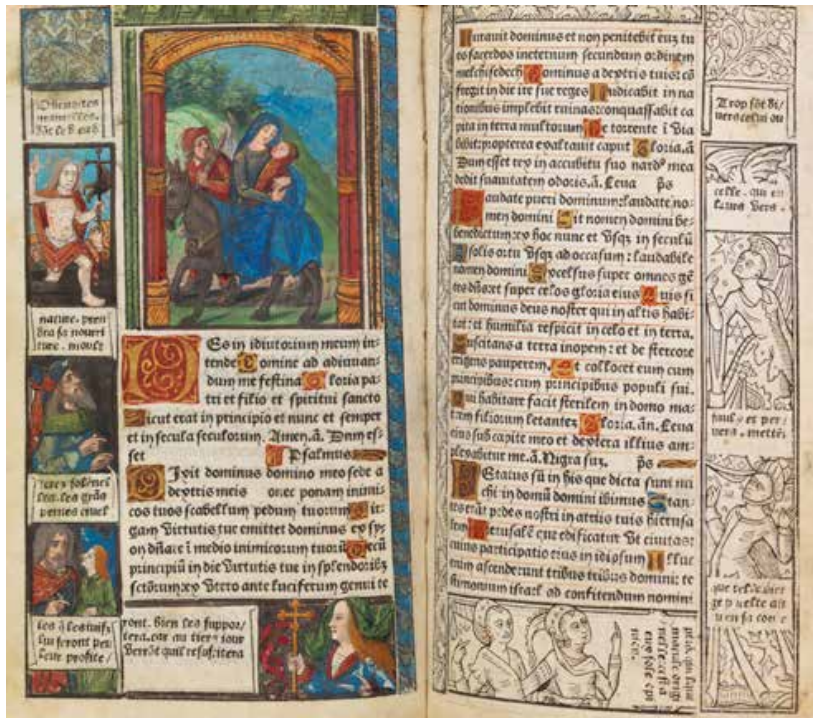 nature. pren
dra sa nourri
ture. moult
les q les iuifz
luy feront par
leur profite/
ront. Bien les suppor/
tera. car au tiers iour
Verrōt quil resuscitera
Es in idiutorium meum in-
tende Domine ad adiuuan-
dum me festina Gloria pa-
tri et filio et spiritui sancto
Sicut erat in principio et nunc et semper
et in secula seculorum. Amen.ā. Dum es-
set Psalmus
Dixit dominus domino meo sede a
dextris meis onec ponam inimi
cos tuos scabellum pedum tuorum Vir-
gam Virtutis tue emittet dominus ex sy-
on dn̄are ī medio inimicorum tuorū Tecū
principiū in die Virtutis tue in splendorib;
sctōrum: ex Vtero ante luciferum genui te
Iurauit dominus et non penitebit eū: tu
es sacerdos ineternum secundum ordinem
melchisedech Dominus a dextris tuis: cō
fregit in die ire sue reges Iudicabit in na
tionibus implebit ruinas: conquassabit ca
pita in terra multorum De torrente ī Via
bibit: propterea exaltauit caput Gloria.ā
Dum esset rex in accubitu suo nardꝰ mea
dedit suauitatem odoris.ā. Leua ps̄
Laudate pueri dominum: laudate no-
men domini Sit nomen domini be-
nedictum: ex hoc nunc et Vsq; in seculū
A solis ortu Vsq; ad occasum: laudabile
nomen domini Excelsus super omnes gē
tes dn̄s: et super celos gloria eius Quis si
cut dominus deus noster qui in altis habi-
tat: et humilia respicit in celo et in terra.
Suscitans a terra inopem: et de stercore
erigens pauperem. Vt collocet eum cum
principibus: cum principibus populi sui.
Qui habitare facit sterilem in domo ma-
trem filiorum letantez Gloria. ān. Leua
eius sub capite meo et dextera illius am-
plexabitur me.ā. Nigra suz. ps̄
Letatus sū in his que dicta sunt mi
chi: in domū domini ibimus Stan-
tes erāt pedes nostri in atriis tuis hierusa
lem Ierusalē que edificatur Vt ciuitas:
cuius participatio eius in idipsum Illuc
enim ascenderunt tribus tribus domini: te
stimonium israel ad confitendum nomini
Trop sōt di/
uers celui ou
celle. qui en